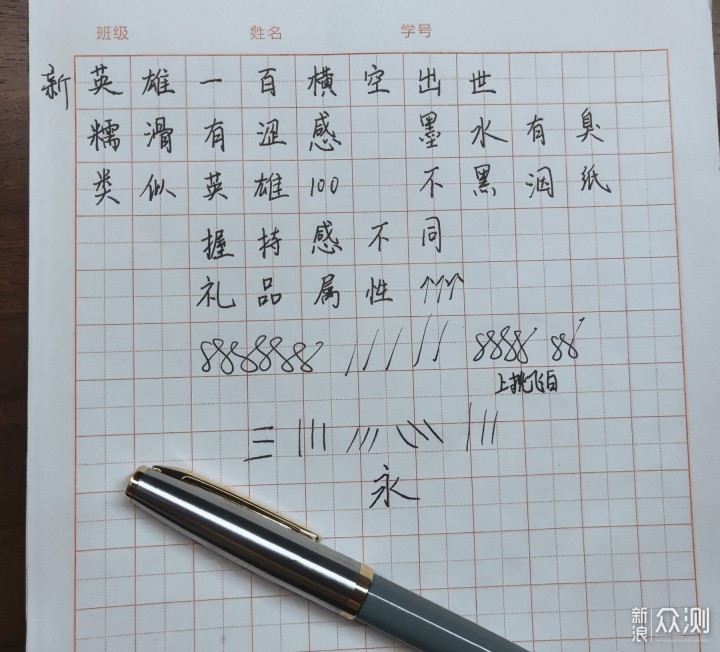 班级 姓名 学号
新英雄一百横空出世
糯滑有涩感 墨水有臭
类似英雄100 不黑洇纸
握持感不同
礼品属性↑↑↑
上挑飞白
永
新浪众测